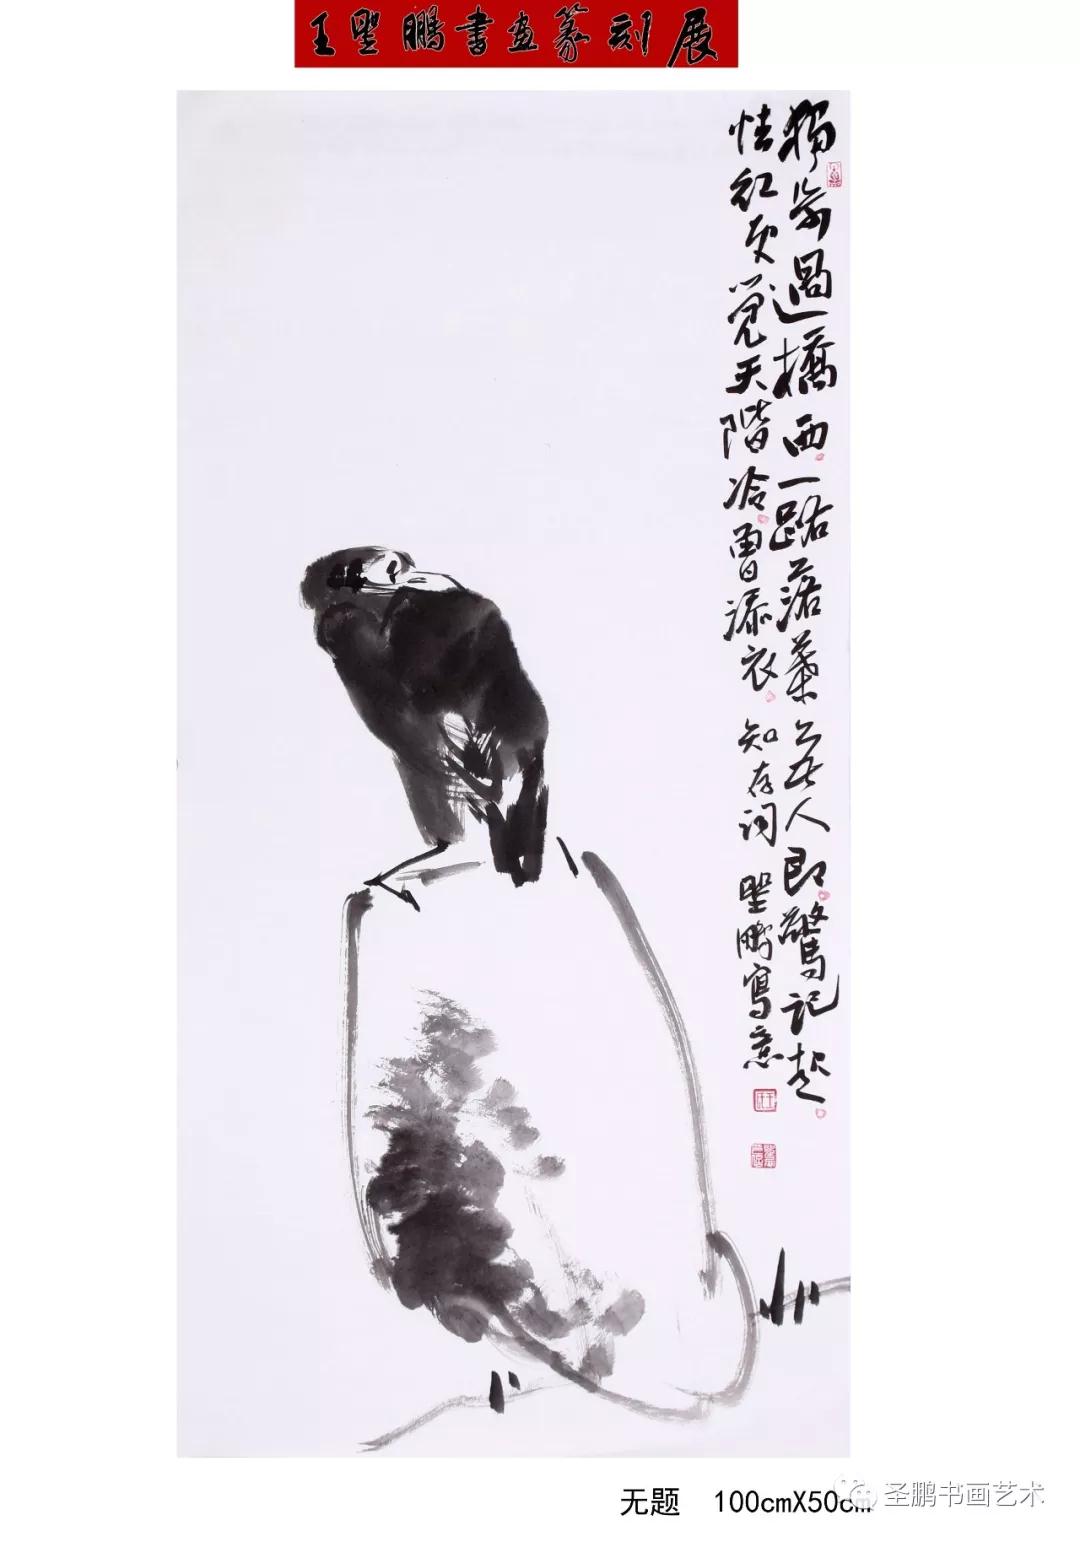 王聖鵬書畫篆刻展
獨步過橋西一路落葉無人即驚記起
怯紅更覺天階冷曾添衣 知存词 聖鵬寫意
无题 100cmX50cm
圣鹏书画艺术